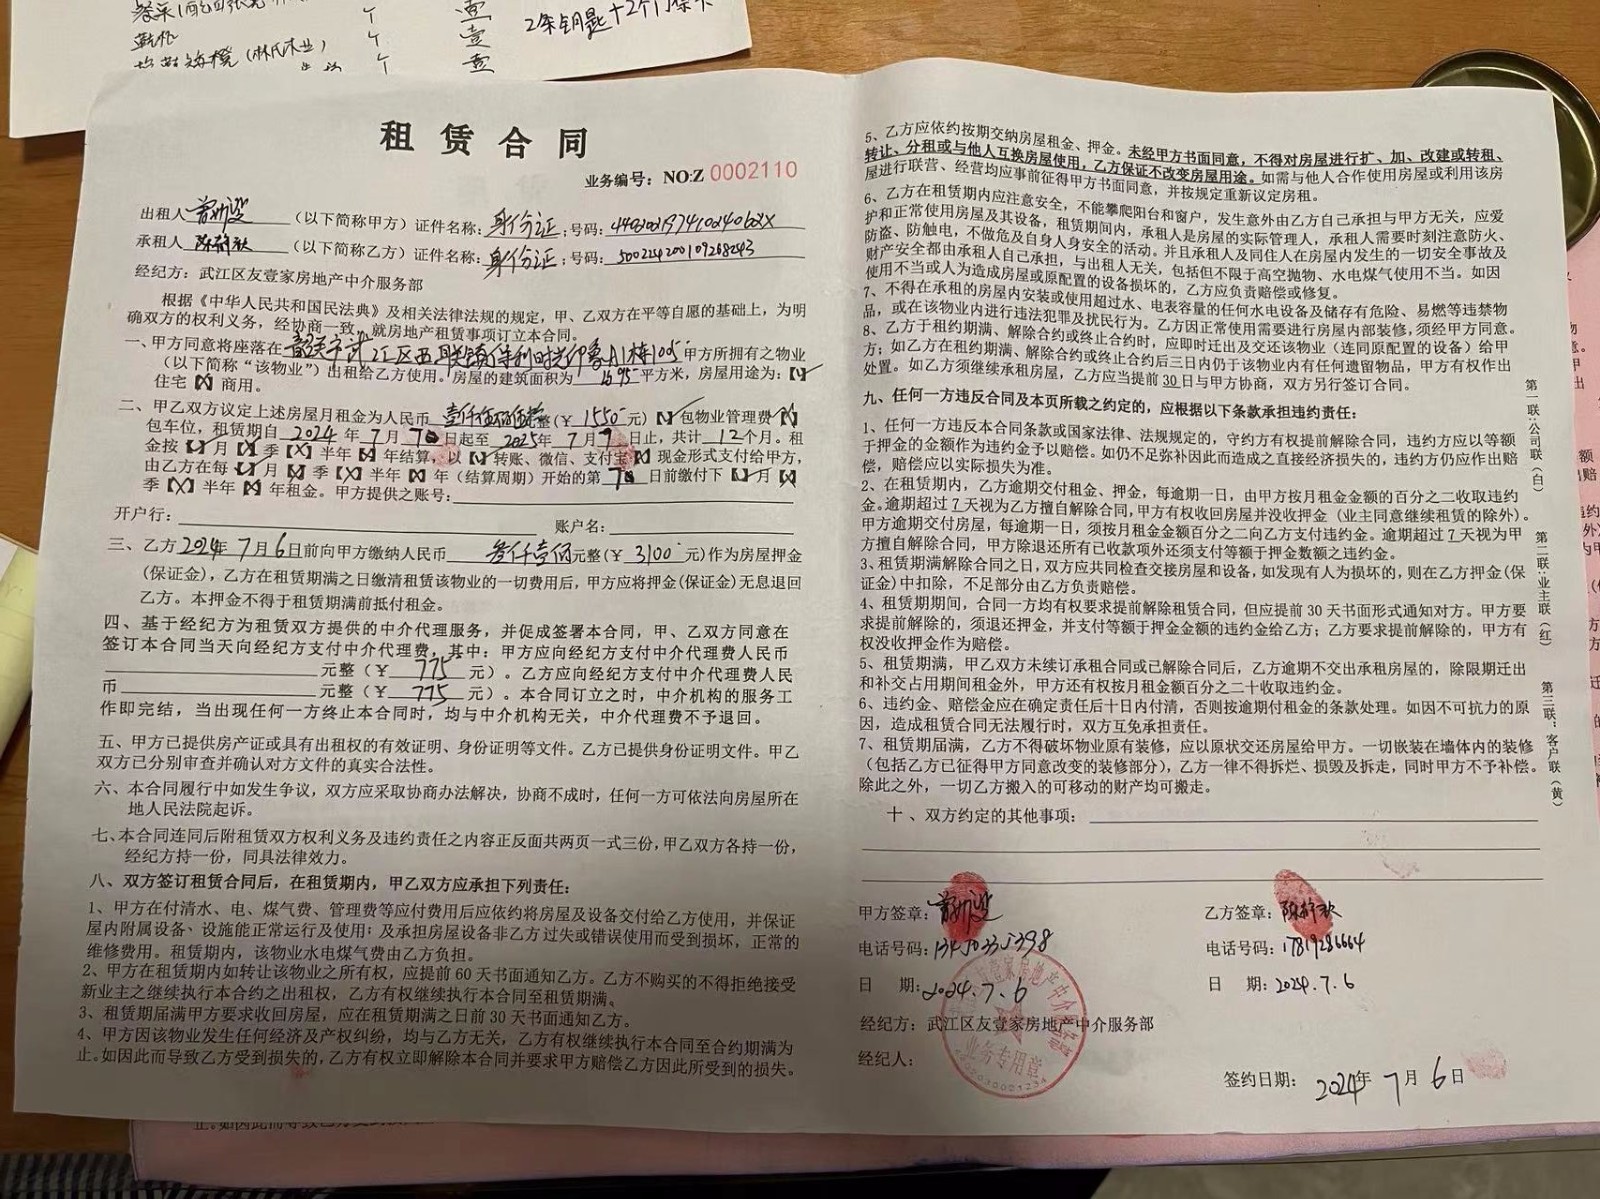 壹
壹
(林氏木业)
壹
2条钥匙+2个门禁卡
租赁合同
业务编号：NO:Z 0002110
出租人 （以下简称甲方）证件名称：身份证；号码：
承租人 （以下简称乙方）证件名称：身份证；号码：
经纪方：武江区友壹家房地产中介服务部
根据《中华人民共和国民法典》及相关法律法规的规定，甲、乙双方在平等自愿的基础上，为明
确双方的权利义务，经协商一致，就房地产租赁事项订立本合同。
一、甲方同意将座落在韶关市武江区西联镇保利时光印象A1栋105甲方所拥有之物业
（以下简称“该物业”）出租给乙方使用。房屋的建筑面积为 平方米，房屋用途为：【✓】
住宅【X】商用。
二、甲乙双方议定上述房屋月租金为人民币 整（￥1550元）【✓】包物业管理费【X】
包车位，租赁期自 2024 年 7 月 7 日起至 2025年 7 月 日止，共计 12 个月。租
金按【✓】月【X】季【X】半年【X】年结算，以【✓】转账、微信、支付宝【X】现金形式支付给甲方，
由乙方在每【✓】月【X】季【X】半年【X】年（结算周期）开始的第 7 日前缴付下【✓】月【X】
季【X】半年【X】年租金。甲方提供之账号：
开户行： 账户名：
三、乙方2024年7月6日前向甲方缴纳人民币 叁仟壹佰元整（￥3100元）作为房屋押金
(保证金)，乙方在租赁期满之日缴清租赁该物业的一切费用后，甲方应将押金(保证金)无息退回
乙方。本押金不得于租赁期满前抵付租金。
四、基于经纪方为租赁双方提供的中介代理服务，并促成签署本合同，甲、乙双方同意在
签订本合同当天向经纪方支付中介代理费，其中：甲方应向经纪方支付中介代理费人民币
元整（￥ 775 元）。乙方应向经纪方支付中介代理费人民
币 元整（￥ 775 元）。本合同订立之时，中介机构的服务工
作即完结，当出现任何一方终止本合同时，均与中介机构无关，中介代理费不予退回。
五、甲方已提供房产证或具有出租权的有效证明、身份证明等文件。乙方已提供身份证明文件。甲乙
双方已分别审查并确认对方文件的真实合法性。
六、本合同履行中如发生争议，双方应采取协商办法解决，协商不成时，任何一方可依法向房屋所在
地人民法院起诉。
七、本合同连同后附租赁双方权利义务及违约责任之内容正反面共两页一式三份，甲乙双方各持一份，
经纪方持一份，同具法律效力。
八、双方签订租赁合同后，在租赁期内，甲乙双方应承担下列责任：
1、甲方在付清水、电、煤气费、管理费等应付费用后应依约将房屋及设备交付给乙方使用，并保证
屋内附属设备、设施能正常运行及使用；及承担房屋设备非乙方过失或错误使用而受到损坏，正常的
维修费用。租赁期内，该物业水电煤气费由乙方负担。
2、甲方在租赁期内如转让该物业之所有权，应提前 60 天书面通知乙方。乙方不购买的不得拒绝接受
新业主之继续执行本合约之出租权，乙方有权继续执行本合同至租赁期满。
3、租赁期届满甲方要求收回房屋，应在租赁期满之日前 30 天书面通知乙方。
4、甲方因该物业发生任何经济及产权纠纷，均与乙方无关，乙方有权继续执行本合同至合约期满为
止。如因此而导致乙方受到损失的，乙方有权立即解除本合同并要求甲方赔偿乙方因此所受到的损失。
5、乙方应依约按期交纳房屋租金、押金。未经甲方书面同意，不得对房屋进行扩、加、改建或转租、
转让、分租或与他人互换房屋使用，乙方保证不改变房屋用途。如需与他人合作使用房屋或利用该房
屋进行联营、经营均应事前征得甲方书面同意，并按规定重新议定房租。
6、乙方在租赁期内应注意安全，不能攀爬阳台和窗户，发生意外由乙方自己承担与甲方无关，应爱
护和正常使用房屋及其设备，租赁期间内，承租人是房屋的实际管理人，承租人需要时刻注意防火、
防盗、防触电，不做危及自身人身安全的活动。并且承租人及同住人在房屋内发生的一切安全事故及
财产安全都由承租人自己承担，与出租人无关，包括但不限于高空抛物、水电煤气使用不当。如因
使用不当或人为造成房屋或原配置的设备损坏的，乙方应负责赔偿或修复。
7、不得在承租的房屋内安装或使用超过水、电表容量的任何水电设备及储存有危险、易燃等违禁物
品，或在该物业内进行违法犯罪及扰民行为。乙方因正常使用需要进行房屋内部装修，须经甲方同意。
8、乙方于租约期满、解除合约或终止合约时，应即时迁出及交还该物业（连同原配置的设备）给甲
方；如乙方在租约期满、解除合约或终止合约后三日内仍于该物业内有任何遗留物品，甲方有权作出
处置。如乙方须继续承租房屋，乙方应当提前 30 日与甲方协商，双方另行签订合同。
九、任何一方违反合同及本页所载之约定的，应根据以下条款承担违约责任：
1、任何一方违反本合同条款或国家法律、法规规定的，守约方有权提前解除合同，违约方应以等额
于押金的金额作为违约金予以赔偿。如仍不足弥补因此而造成之直接经济损失的，违约方仍应作出赔
偿，赔偿应以实际损失为准。
2、在租赁期内，乙方逾期交付租金、押金，每逾期一日，由甲方按月租金金额的百分之二收取违约
金。逾期超过 7 天视为乙方擅自解除合同，甲方有权收回房屋并没收押金（业主同意继续租赁的除外）。
甲方逾期交付房屋，每逾期一日，须按月租金金额百分之二向乙方支付违约金。逾期超过 7 天视为甲
方擅自解除合同，甲方除退还所有已收款项外还须支付等额于押金数额之违约金。
3、租赁期满解除合同之日，双方应共同检查交接房屋和设备，如发现有人为损坏的，则在乙方押金(保
证金)中扣除，不足部分由乙方负责赔偿。
4、租赁期期间，合同一方均有权要求提前解除租赁合同，但应提前 30 天书面形式通知对方。甲方要
求提前解除的，须退还押金，并支付等额于押金金额的违约金给乙方；乙方要求提前解除的，甲方有
权没收押金作为赔偿。
5、租赁期满，甲乙双方未续订承租合同或已解除合同后，乙方逾期不交出承租房屋的，除限期迁出
和补交占用期间租金外，甲方还有权按月租金额百分之二十收取违约金。
6、违约金、赔偿金应在确定责任后十日内付清，否则按逾期付租金的条款处理。如因不可抗力的原
因，造成租赁合同无法履行时，双方互免承担责任。
7、租赁期届满，乙方不得破坏物业原有装修，应以原状交还房屋给甲方。一切嵌装在墙体内的装修
（包括乙方已征得甲方同意改变的装修部分），乙方一律不得拆烂、损毁及拆走，同时甲方不予补偿。
除此之外，一切乙方搬入的可移动的财产均可搬走。
十、双方约定的其他事项：
甲方签章： 乙方签章：
电话号码： 电话号码：17819286664
日 期：2024.7.6 日 期：2024.7.6
经纪方：武江区友壹家房地产中介服务部
经纪人：
业务专用章
签约日期： 2024年 7月 6日
第一联：公司联（白）
第二联：业主联（红）
第三联：客户联（黄）